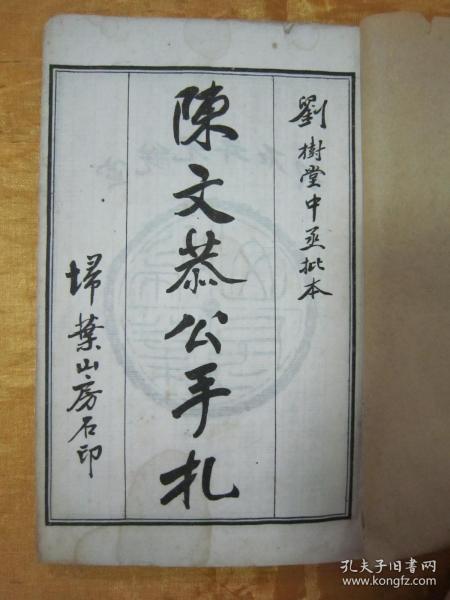 劉樹堂中丞批本
陳文恭公手札
埽葉山房石印
孔夫子旧书网
www.kongfz.com